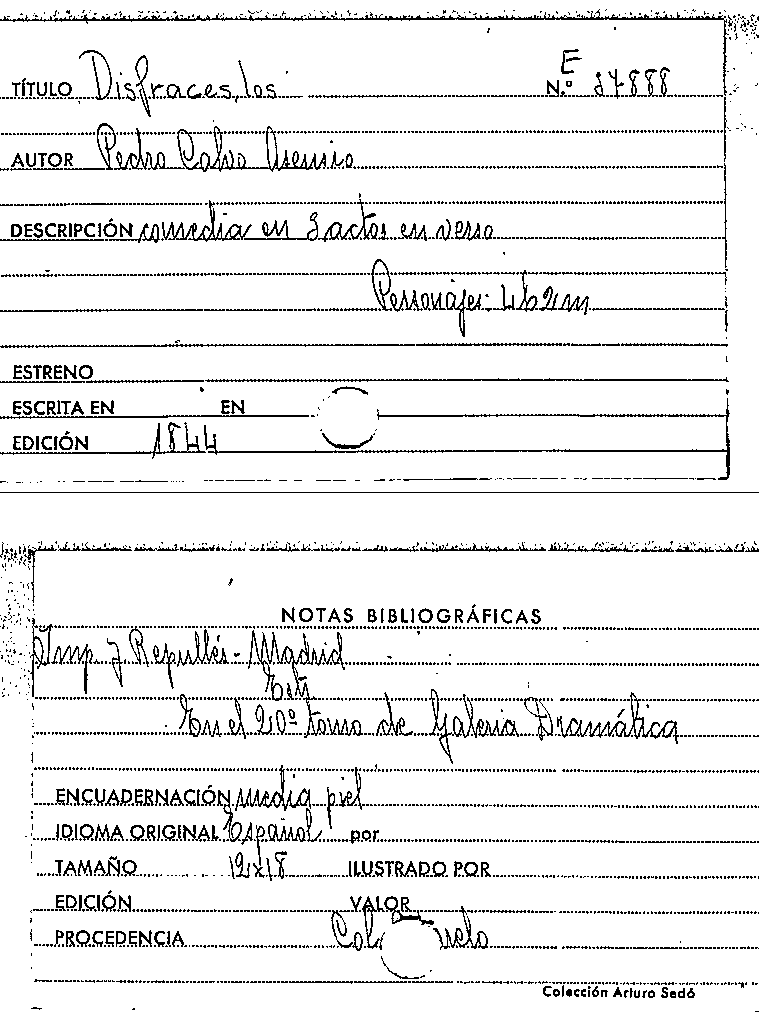 TÍTULO Disfraces, los
E
N.º 37888
AUTOR Pedro Calvo Asensio
DESCRIPCIÓN comedia en 3 actos en verso
Personajes: 4h 2m
ESTRENO
ESCRITA EN EN
EDICIÓN 1844
NOTAS BIBLIOGRÁFICAS
Imp. J Repullés - Madrid
En el 20º tomo de Galeria Dramática
ENCUADERNACIÓN media piel
IDIOMA ORIGINAL Español por
TAMAÑO 12x18 ILUSTRADO POR
EDICIÓN VALOR
PROCEDENCIA
Colección Arturo Sedó